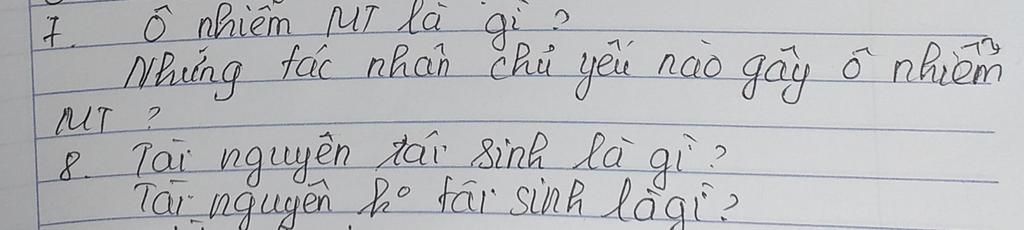 7. Ô nhiễm MT là gì?
Những tác nhân chủ yếu nào gây ô nhiễm
MT?
8. Tài nguyên tái sinh là gì?
Tài nguyên ko tái sinh là gì?